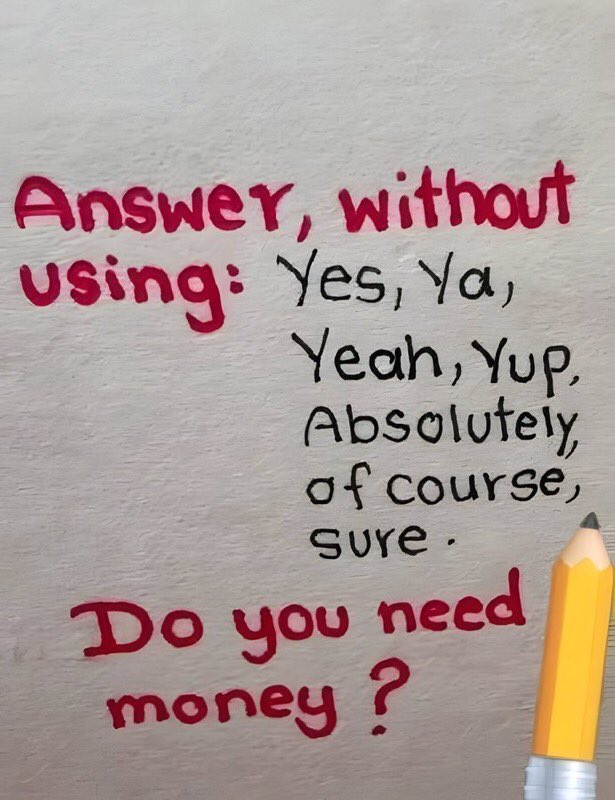 Answer, without
using: Yes, Ya,
Yeah, Yup,
Absolutely,
of course,
sure.
Do you need
money?